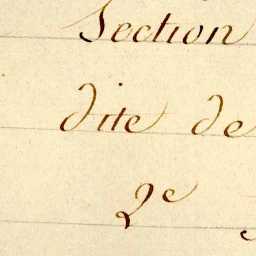 Section
dite de
2e